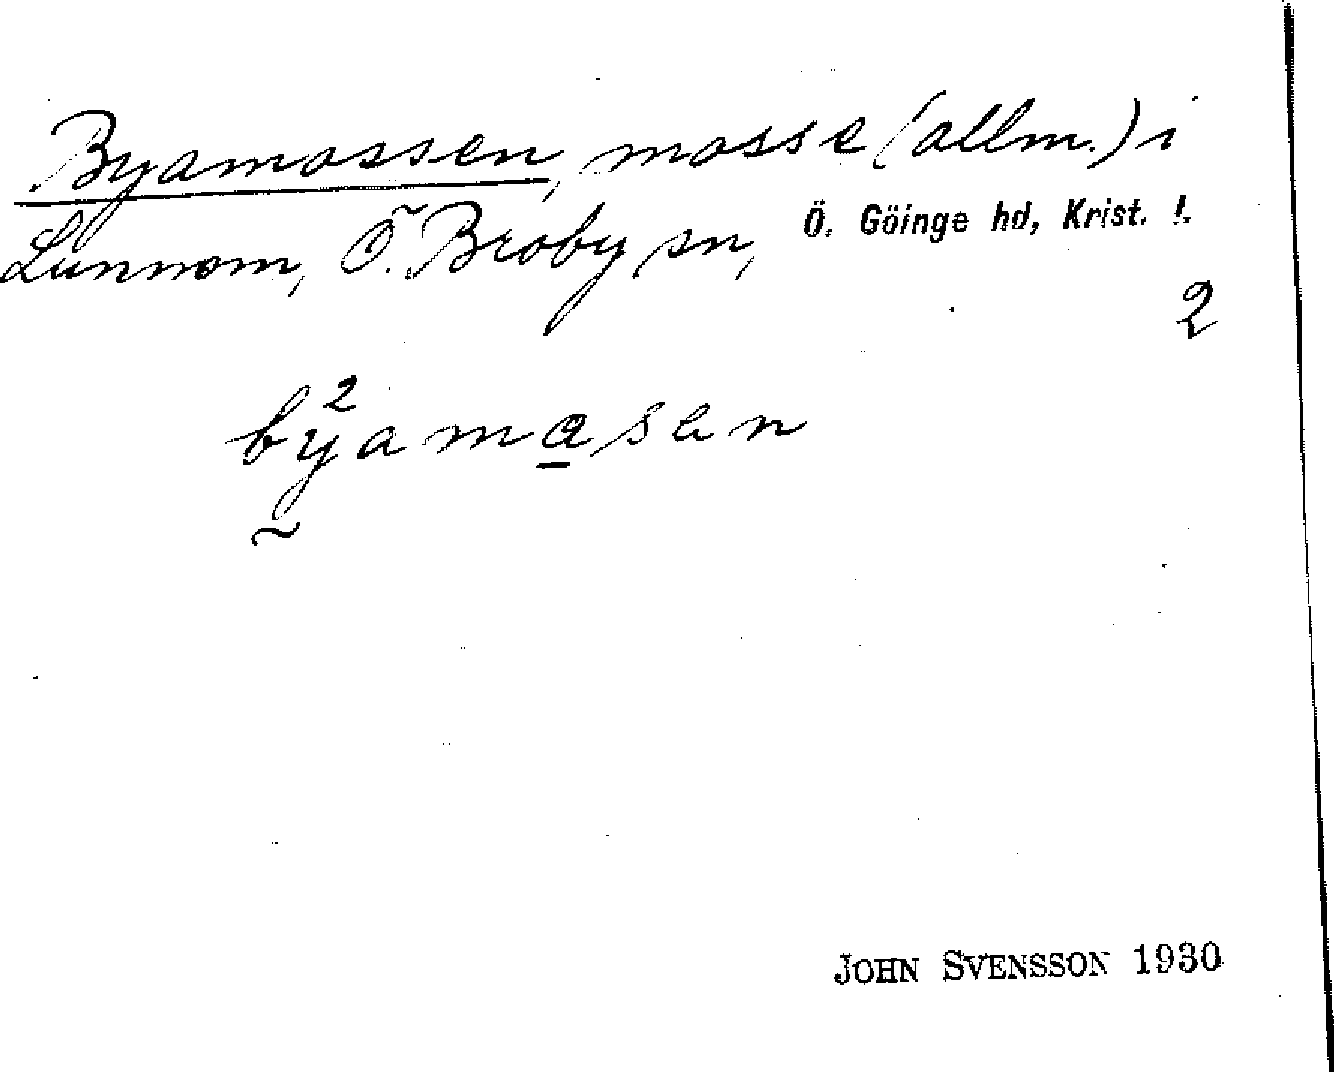 Byamossen, mosse (allm.) i
Lunnom, Ö. Broby sn, Ö. Göinge hd, Krist. l.
2
by²amasen
JOHN SVENSSON 1930